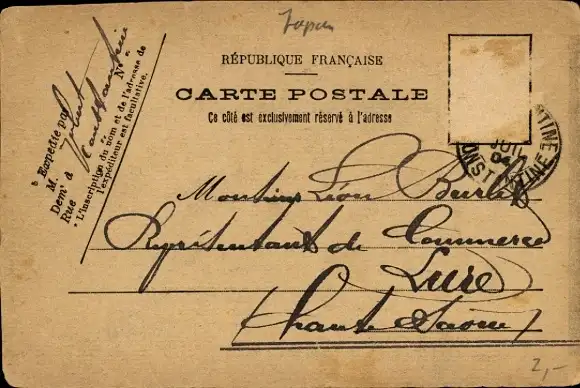 Japan
RÉPUBLIQUE FRANÇAISE
CARTE POSTALE
Ce côté est exclusivement réservé à l'adresse
Expédié par
M.
Dem! à Constantine
Rue N°
* L'inscription du nom et de l'adresse de
l'expéditeur est facultative.
CONSTANTINE
JUIL
04
Monsieur Léon
Représentant de Commerce
Lure
Haute Saône
2,-